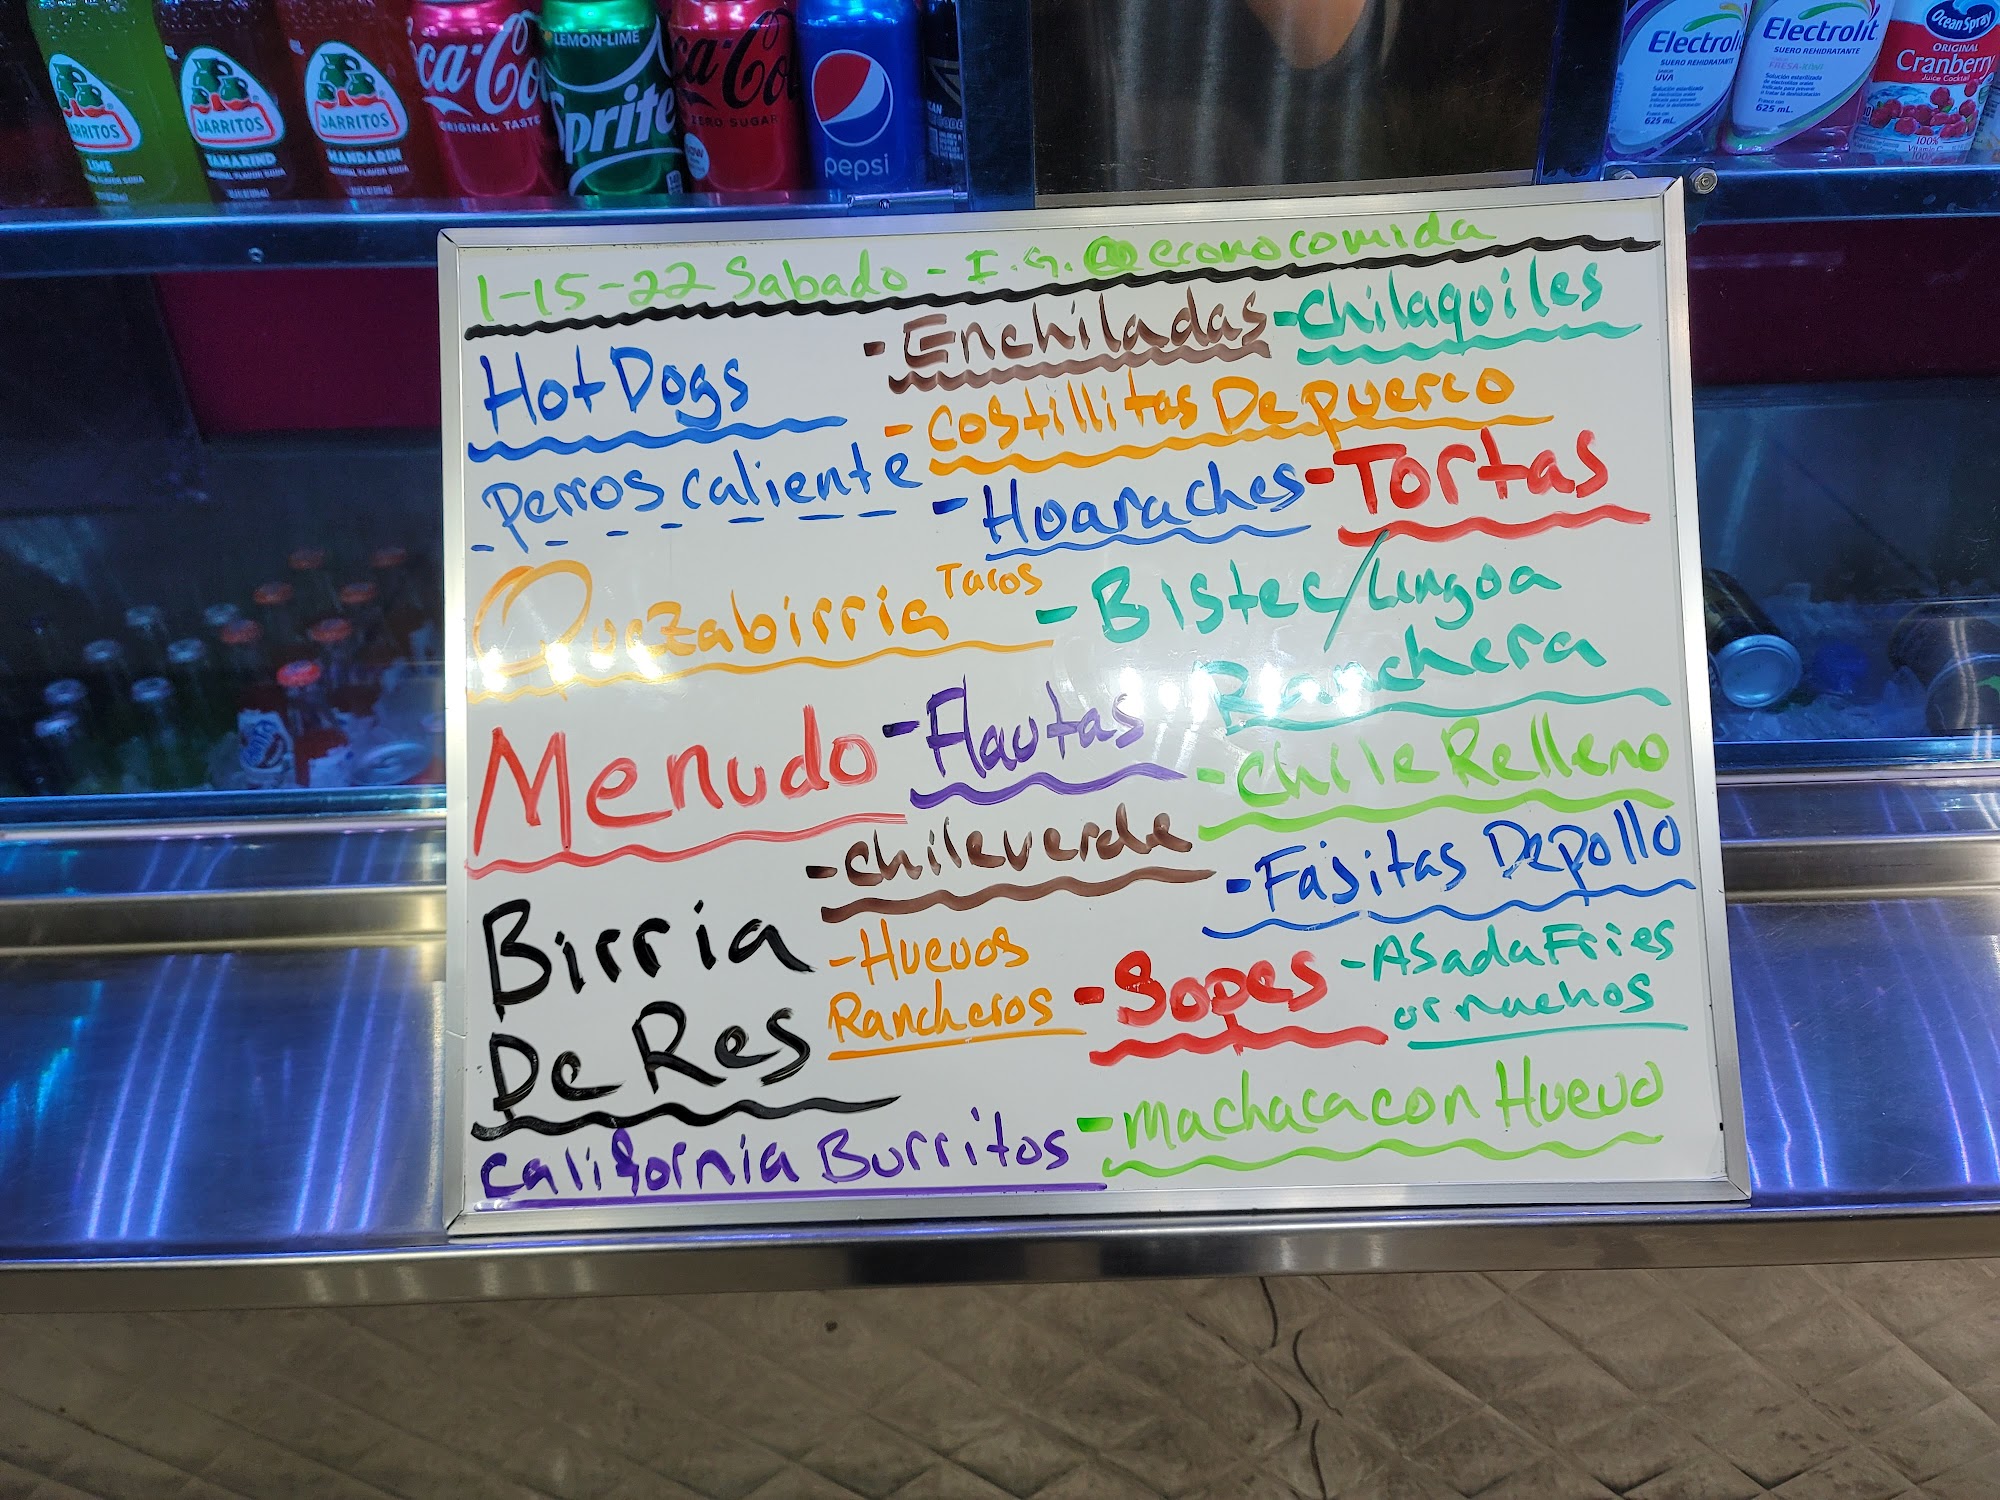 JARRITOS
LIME
JARRITOS
TAMARIND
JARRITOS
MANDARIN
Coca-Co
ORIGINAL TASTE
LEMON-LIME
Sprite
ZERO SUGAR
pepsi
Electrolit
SUERO REHIDRATANTE
UVA
625 mL.
Electrolit
SUERO REHIDRATANTE
FRESA-KIWI
625 mL.
Ocean Spray
ORIGINAL
Cranberry
Juice Cocktail
100%
Vitamin C
1-15-22 Sabado - I.G. @econocomida
Hot Dogs
Perros caliente
Quezabirria Tacos
Menudo
Birria
De Res
California Burritos
- Enchiladas
- Chilaquiles
- Costillitas De puerco
- Huaraches
- Tortas
- Bistec/Lengua
Ranchera
- Flautas
- Chile Relleno
- Chile verde
- Fajitas De pollo
- Huevos
Rancheros
- Sopes
- Asada Fries
or nachos
- Machaca con Huevo